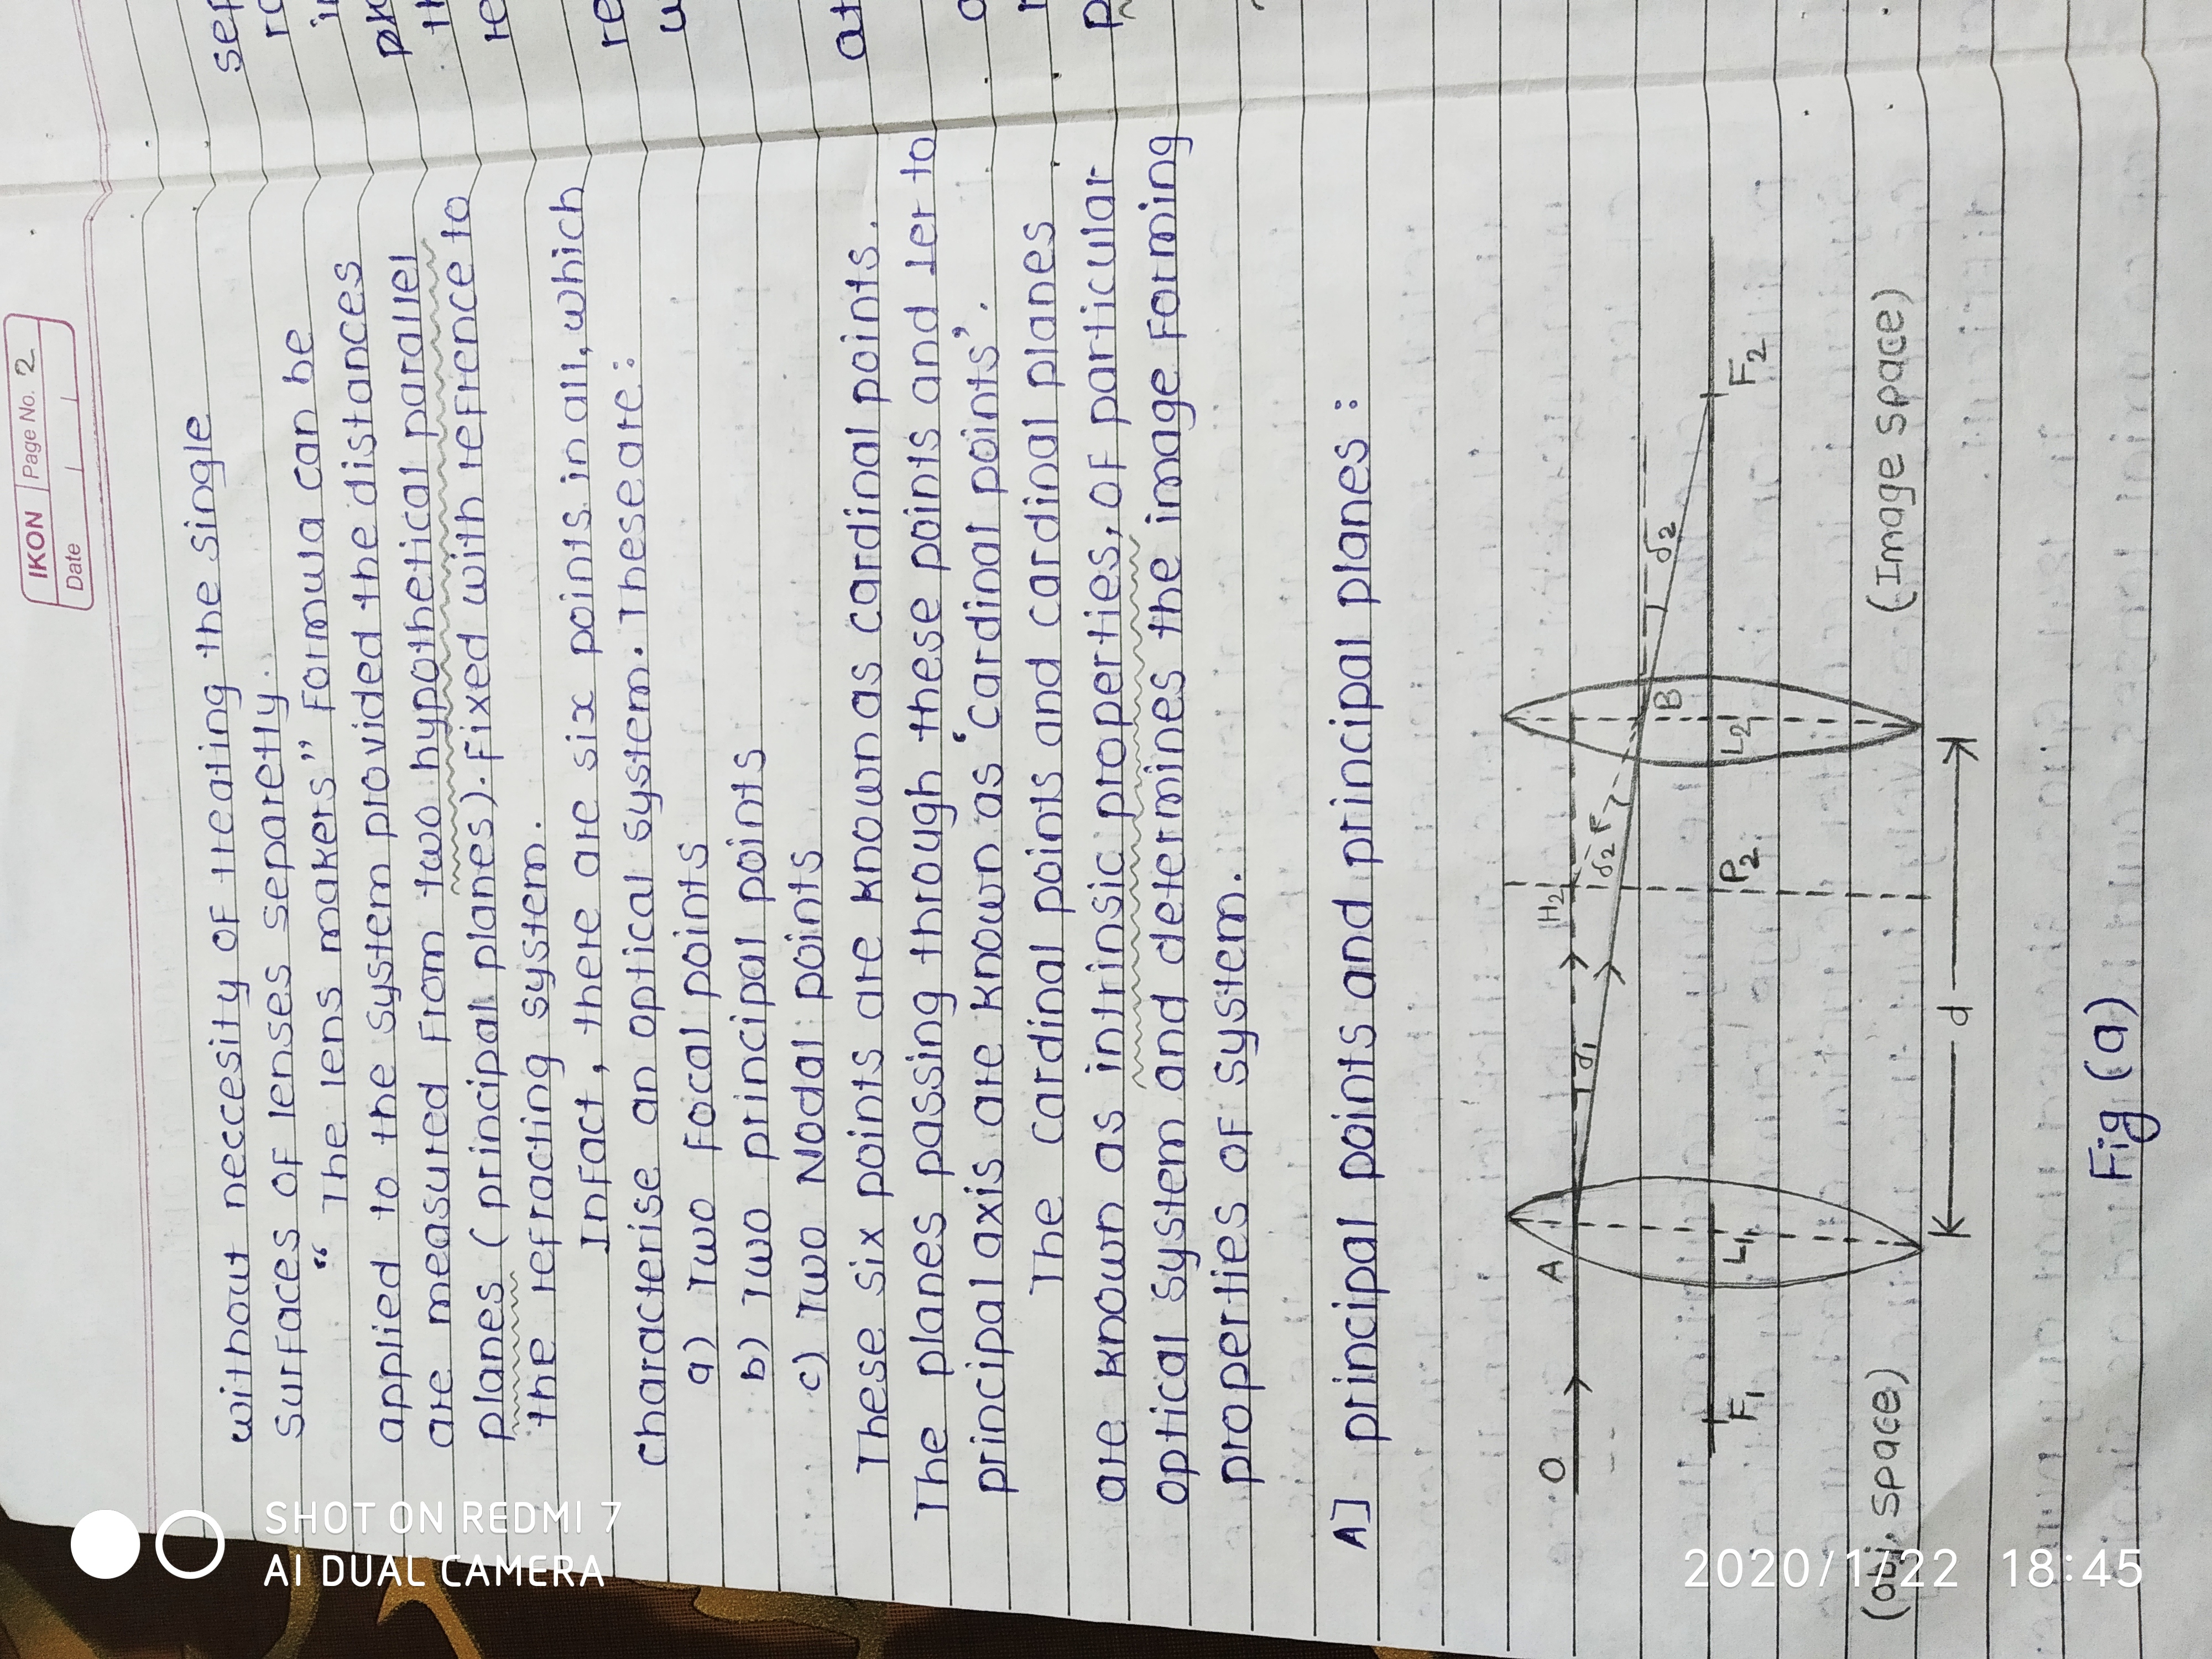 IKON Page No. 2
Date
without neccesity of treating the single
surfaces of lenses separetly.
“ The lens makers” formula can be
applied to the system provided the distances
are measured from two hypothetical parallel
planes (principal planes). fixed with refrence to
the refracting system.
Infact, there are six points in all, which
characterise an optical system. These are:
a) Two focal points
b) Two principal points
c) Two Nodal points
These six points are known as cardinal points.
The planes passing through these points and ler to
principal axis are known as ‘cardinal points’.
The cardinal points and cardinal planes
are known as intrinsic properties, of particular
optical system and determines the image forming
properties of system.
A] principal points and principal planes :
O A H2
δ1 δ2 F B δ2
F1 L1 P2 L2 F2
(obj. space) d (Image space)
Fig (a)
SHOT ON REDMI 7
AI DUAL CAMERA
2020/1/22 18:45